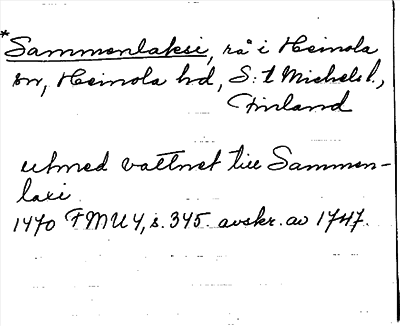 *Sammenlaksi, rå i Heinola
sn, Heinola hd, S:t Michels l.,
Finland
utmed vattnet till Sammen-
laxi
1470 FMU 4, s. 345. avskr. av 1747.